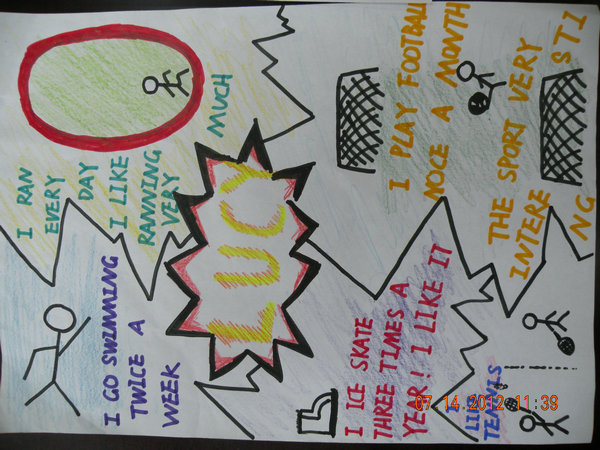 I RAN
EVERY
DAY
I LIKE
RANNING
VERY
MUCH
I PLAY FOOTBALL
NOCE A MONTH
THE SPORT VERY
INTERE
STI
NG
LUCY
I GO SWIMMING
TWICE A
WEEK
I ICE SKATE
THREE TIMES A
YEAR! I LIKE IT
I
LIKE
TENNIS
07.14.2012 11:39